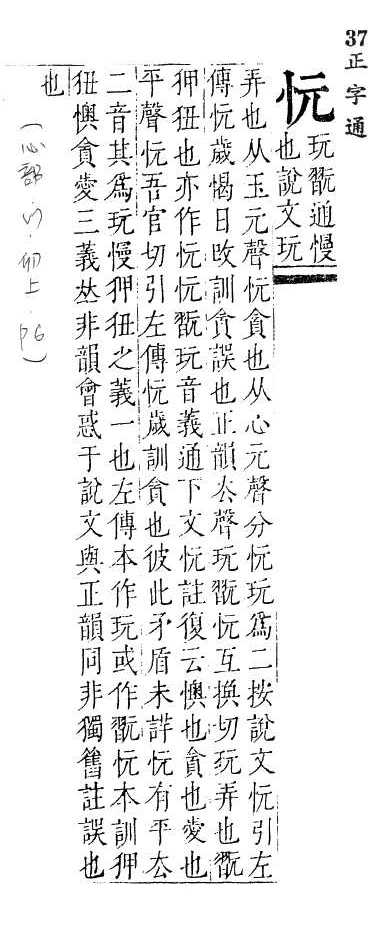 37正字通
忨
玩翫通慢
也說文玩
弄也从玉元聲忨貪也从心元聲分忨玩爲二按說文忨引左
傳忨歲愒日改訓貪誤也正韻去聲玩翫忨互換切玩弄也翫
狎狃也亦作忨忨翫玩音義通下文忨註復云懊也貪也愛也
平聲忨吾官切引左傳忨歲訓貪也彼此矛盾未詳忨有平去
二音其爲玩慢狎狃之義一也左傳本作玩或作翫忨本訓狎
狃懊貪愛三義𠀤非韻會惑于說文與正韻同非獨舊註誤也
也
(心部
上
p6)